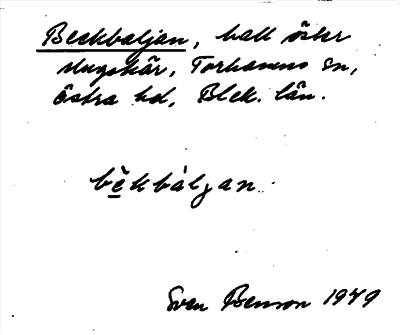 Beckbaljan, hall öster
Ungskär, Torhamns sn,
Östra hd, Blek. län.
bèkbáljan
Sven Benson 1949